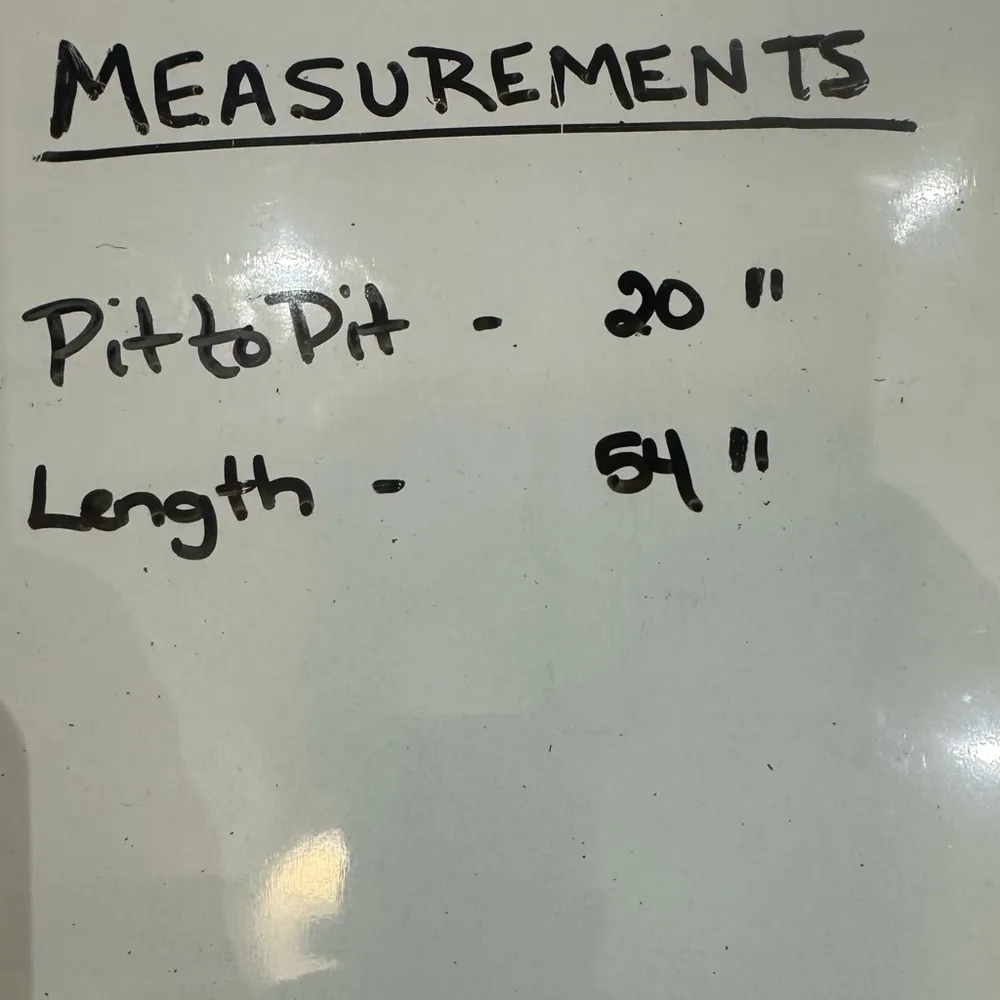 MEASUREMENTS
Pit to Pit - 20"
Length - 54"